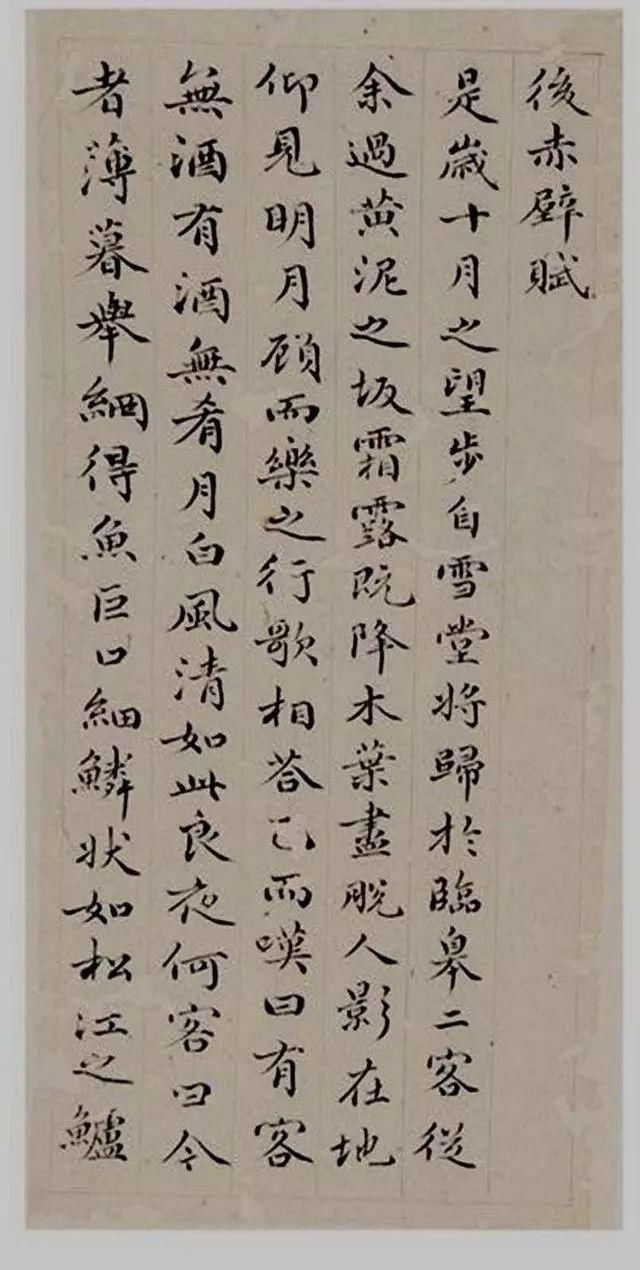 後赤壁賦
是歲十月之望步自雪堂將歸於臨皋二客從
余過黃泥之坂霜露既降木葉盡脫人影在地
仰見明月顧而樂之行歌相荅已而嘆曰有客
無酒有酒無肴月白風清如此良夜何客曰今
者薄暮舉網得魚巨口細鱗狀如松江之鱸